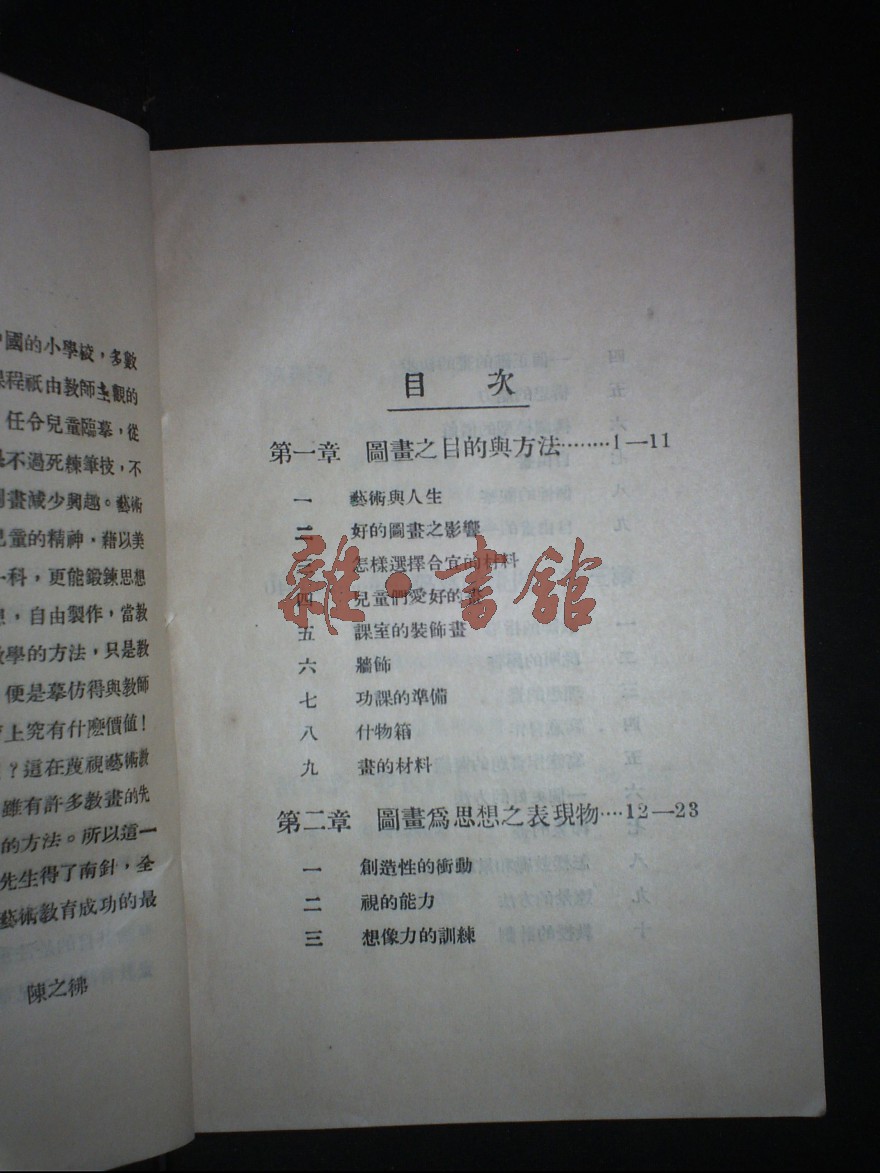 中國的小學校，多數
課程祇由教師主觀的
任令兒童臨摹，從
不過死練筆技，不
畫減少興趣。藝術
兒童的精神，藉以美
一科，更能鍛鍊思想
，自由製作，當教
教學的方法，只是教
便是摹仿得與教師
上究有什麽價値！
？這在蔑視藝術教
雖有許多教畫的先
的方法。所以這一
先生得了南針，全
藝術教育成功的最
陳之彿
目 次
第一章 圖畫之目的與方法………1—11
一 藝術與人生
二 好的圖畫之影響
三 怎樣選擇合宜的材料
四 兒童們愛好的畫
五 課室的裝飾畫
六 牆飾
七 功課的準備
八 什物箱
九 畫的材料
第二章 圖畫爲思想之表現物…12—23
一 創造性的衝動
二 視的能力
三 想像力的訓練
雜·書館